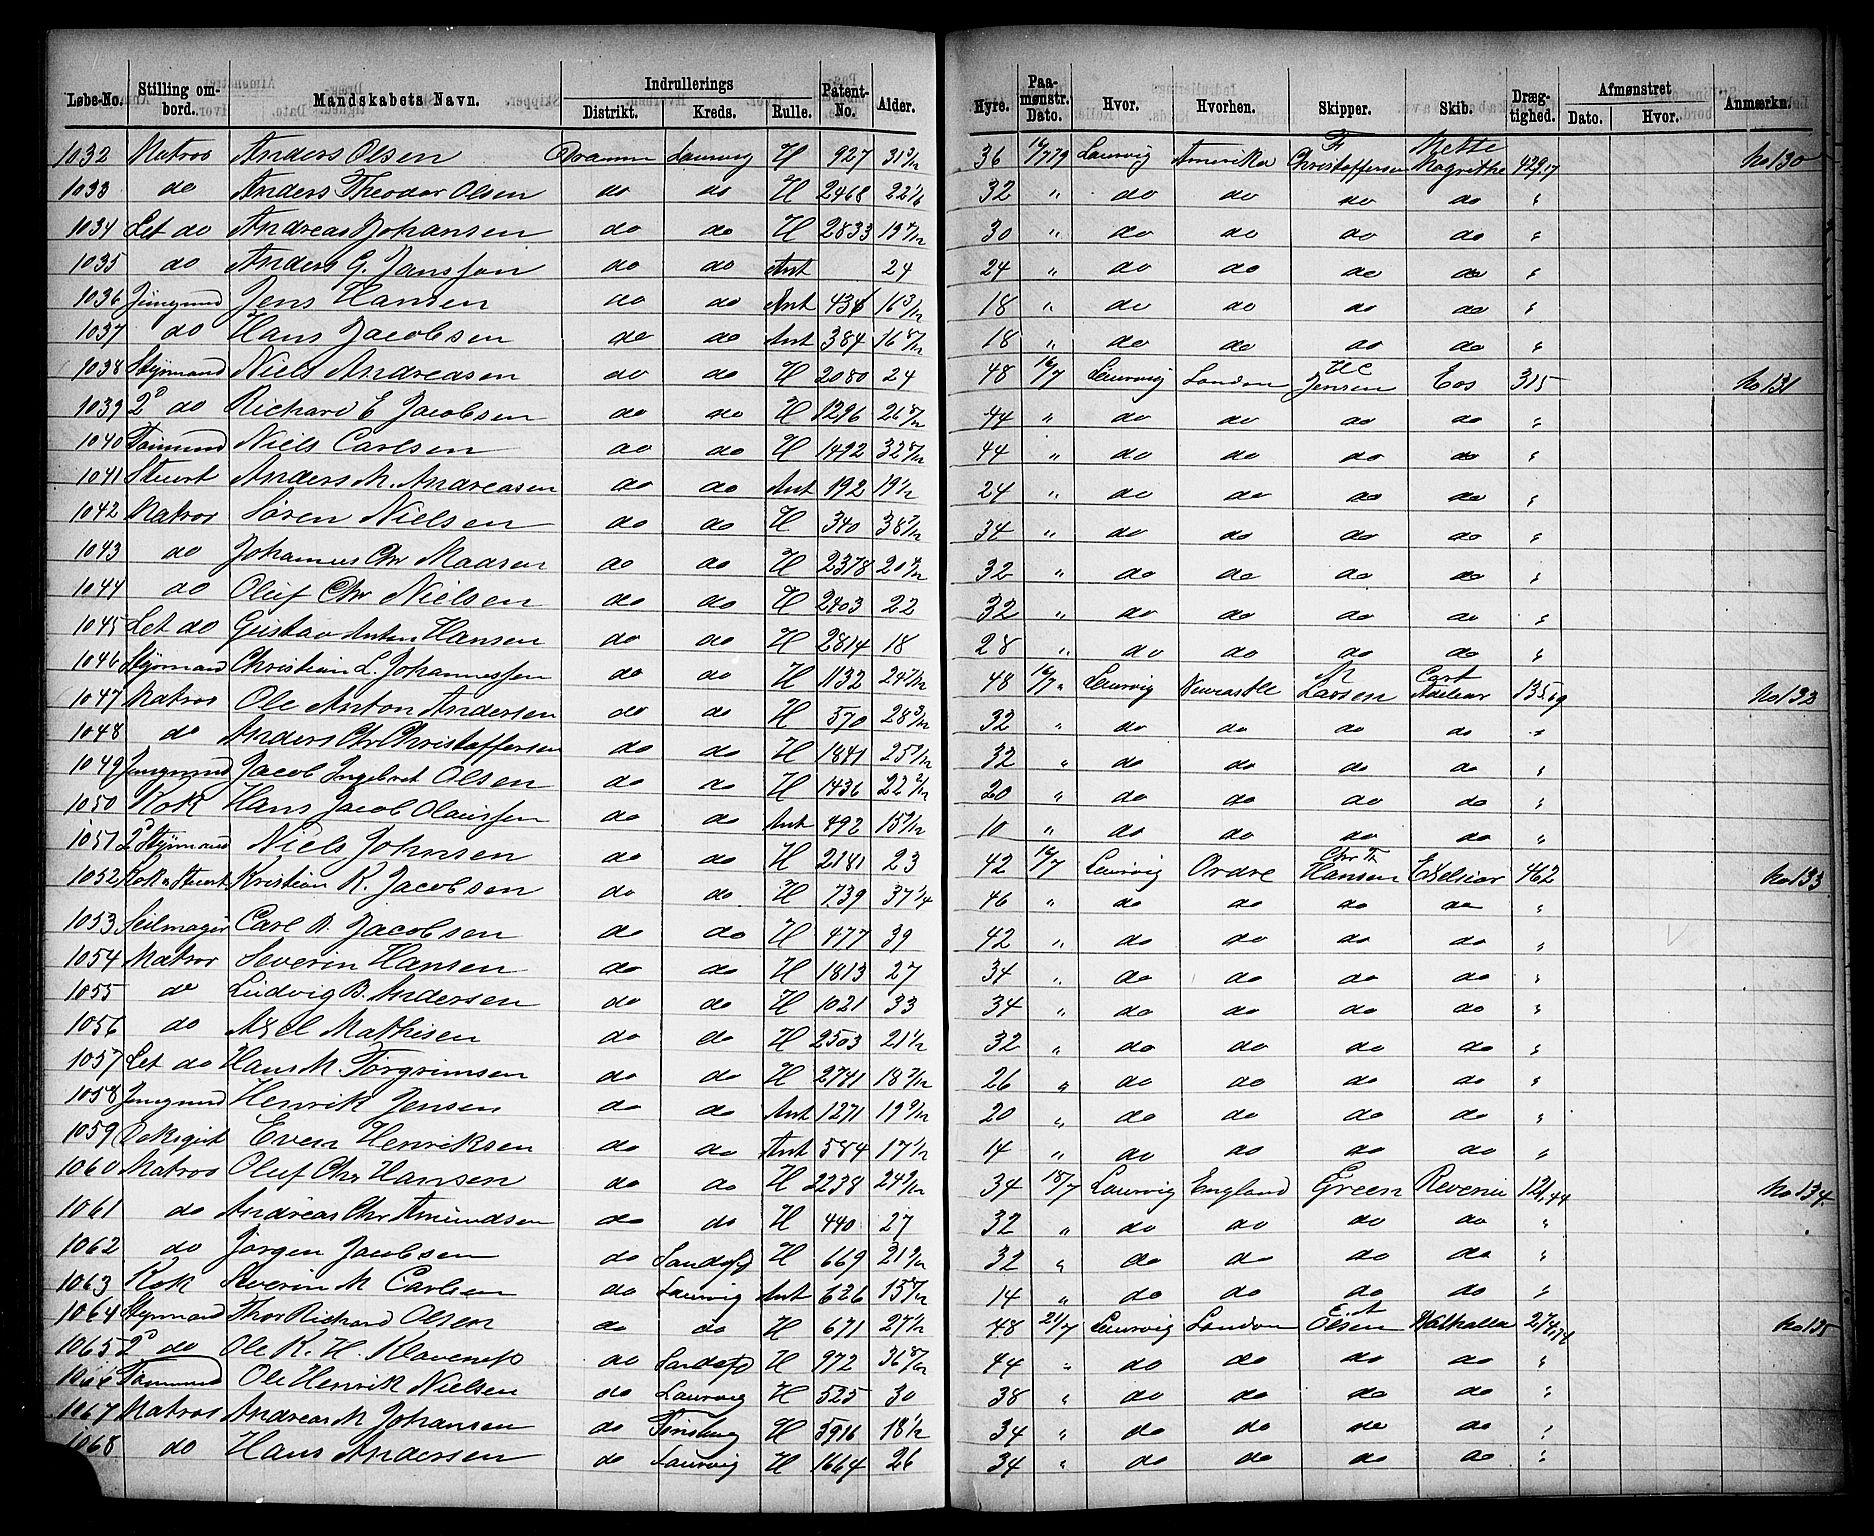 Løbe-No. Stilling ombord. Mandskabets Navn. Indrullerings Distrikt. Kreds. Rulle. Patent-No. Alder. Hyre. Paamønstr. Dato. Hvor. Hvorhen. Skipper. Skib. Drægtighed. Afmønstret Dato. Hvor. Anmærkn.
1032 Matros Anders Olsen Dramm Laurvig H 927 31 3/12 36 16/7 79 Laurvig Amerika F Christoffersen Mette Magrethe 429,17 No 130
1033 do Anders Theodor Olsen do do H 2468 22 1/6 32 " do do do do "
1034 Let do Andreas Johansen do do H 2833 19 7/12 30 " do do do do "
1035 do Anders G. Jansson do do Ant 24 24 " do do do do "
1036 Jungmand Jens Hansen do do Ant 18 " do do do do "
1037 do Hans Jacobsen do do Ant 384 16 8/12 18 " do do do do "
1038 Styrmand Niels Andreasen do do H 2080 24 48 16/7 Laurvig London H C Jensen Eos 315 No 131
1039 2d do Richard E Jacobsen do do H 1296 26 8/12 44 " do do do do "
1040 Tømmrmd Niels Carlsen do do H 1492 32 8/12 44 " do do do do "
1041 Stuert Anders M. Andreasen do do Ant 192 19 1/2 24 " do do do do "
1042 Matros Søren Nielsen do do H 340 38 7/12 34 " do do do do "
1043 do Johannes Chr Madsen do do H 2378 20 9/12 32 " do do do do "
1044 do Oluf Chr Nielsen do do H 2403 22 32 " do do do do "
1045 Let do Gustav Anton Hansen do do H 2814 18 28 " do do do do "
1046 Styrmand Christian L. Johannessen do do H 1132 24 7/12 48 16/7 " Laurvig Newcastle M Larsen Cort Adelaer 135,59 No 132
1047 Matros Ole Anton Andersen do do H 570 28 3/12 32 " do do do do "
1048 do Anders Chr Christoffersen do do H 1841 25 7/12 32 " do do do do "
1049 Jungmand Jacob Ingebret Olsen do do H 1436 22 2/12 20 " do do do do "
1050 Kok Hans Jacob Olaussen do do Ant 492 15 9/12 10 " do do do do "
1051 2d Styrmand Niels Johnsen do do H 2181 23 42 16/7 Laurvig Ordre Chr Th Hansen Exelsior 462 No 133
1052 Kok & Stuert Kristian R. Jacobsen do do H 739 37 1/4 46 " do do do do "
1053 Seilmager Carl B. Jacobsen do do H 477 39 42 " do do do do "
1054 Matros Severin Hansen do do H 1813 27 34 " do do do do "
1055 do Ludvig B. Andersen do do H 1021 33 34 " do do do do "
1056 do Axel Mathisen do do H 2503 21 1/2 32 " do do do do "
1057 Let do Hans M. Torgrimsen do do H 2741 18 7/12 26 " do do do do "
1058 Jungmand Henrik Jensen do do Ant 1271 19 9/12 20 " do do do do "
1059 Dæksgut Even Henriksen do do Ant 584 17 1/2 14 " do do do do "
1060 Matros Oluf Chr Hansen do do H 2238 24 9/12 34 18/7 Laurvig England Green 121,44 No 134
1061 do Andreas Chr Amundsen do do H 440 27 32 " do do do do "
1062 do Jørgen Jacobsen do Sandefj H 669 21 9/12 32 " do do do do "
1063 Kok Severin M Carlsen do Laurvig Ant 626 15 8/12 14 " do do do do "
1064 Styrmand Thor Richard Olsen do do H 671 27 1/2 48 21/7 Laurvig London E. A Olsen Walhalla No 135
1065 2d do Ole K. H. Klavenæs do Sandefj H 972 36 8/12 44 " do do do do "
1066 Tømmrmd Ole Henrik Nielsen do Laurvig H 525 30 38 " do do do do "
1067 Matros Andreas M Johansen do Tønsberg H 5916 18 1/2 34 " do do do do "
1068 do Hans Andersen do Laurvig H 1664 26 34 " do do do do "